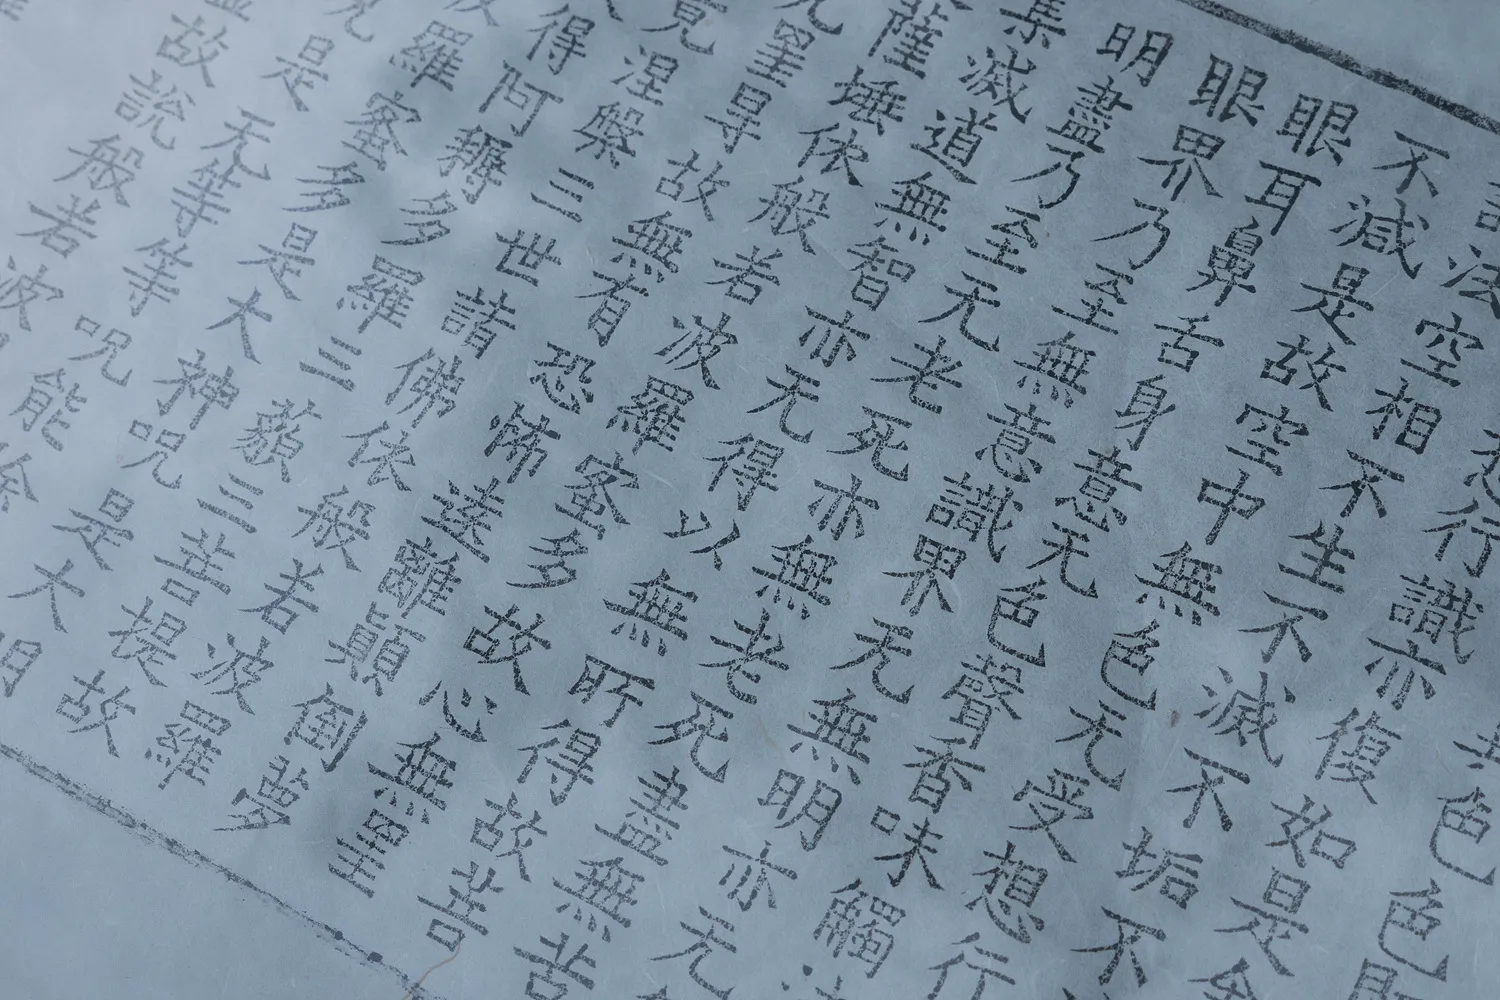 色色
想行識亦復如是
法空相不生不滅不垢不
不減是故空中無色无受想行
眼耳鼻舌身意无色聲香味觸
眼界乃至無意識界无無明亦无
明盡乃至无老死亦無老死盡無苦
集滅道無智亦无得以無所得故菩
薩埵依般若波羅蜜多故心無罣
无罣㝵故無有恐怖遠離顛倒夢
竟涅槃三世諸佛依般若波羅
得阿耨多羅三藐三菩提故
羅蜜多是大神咒是大明
咒是无等等咒能除
故說般若波